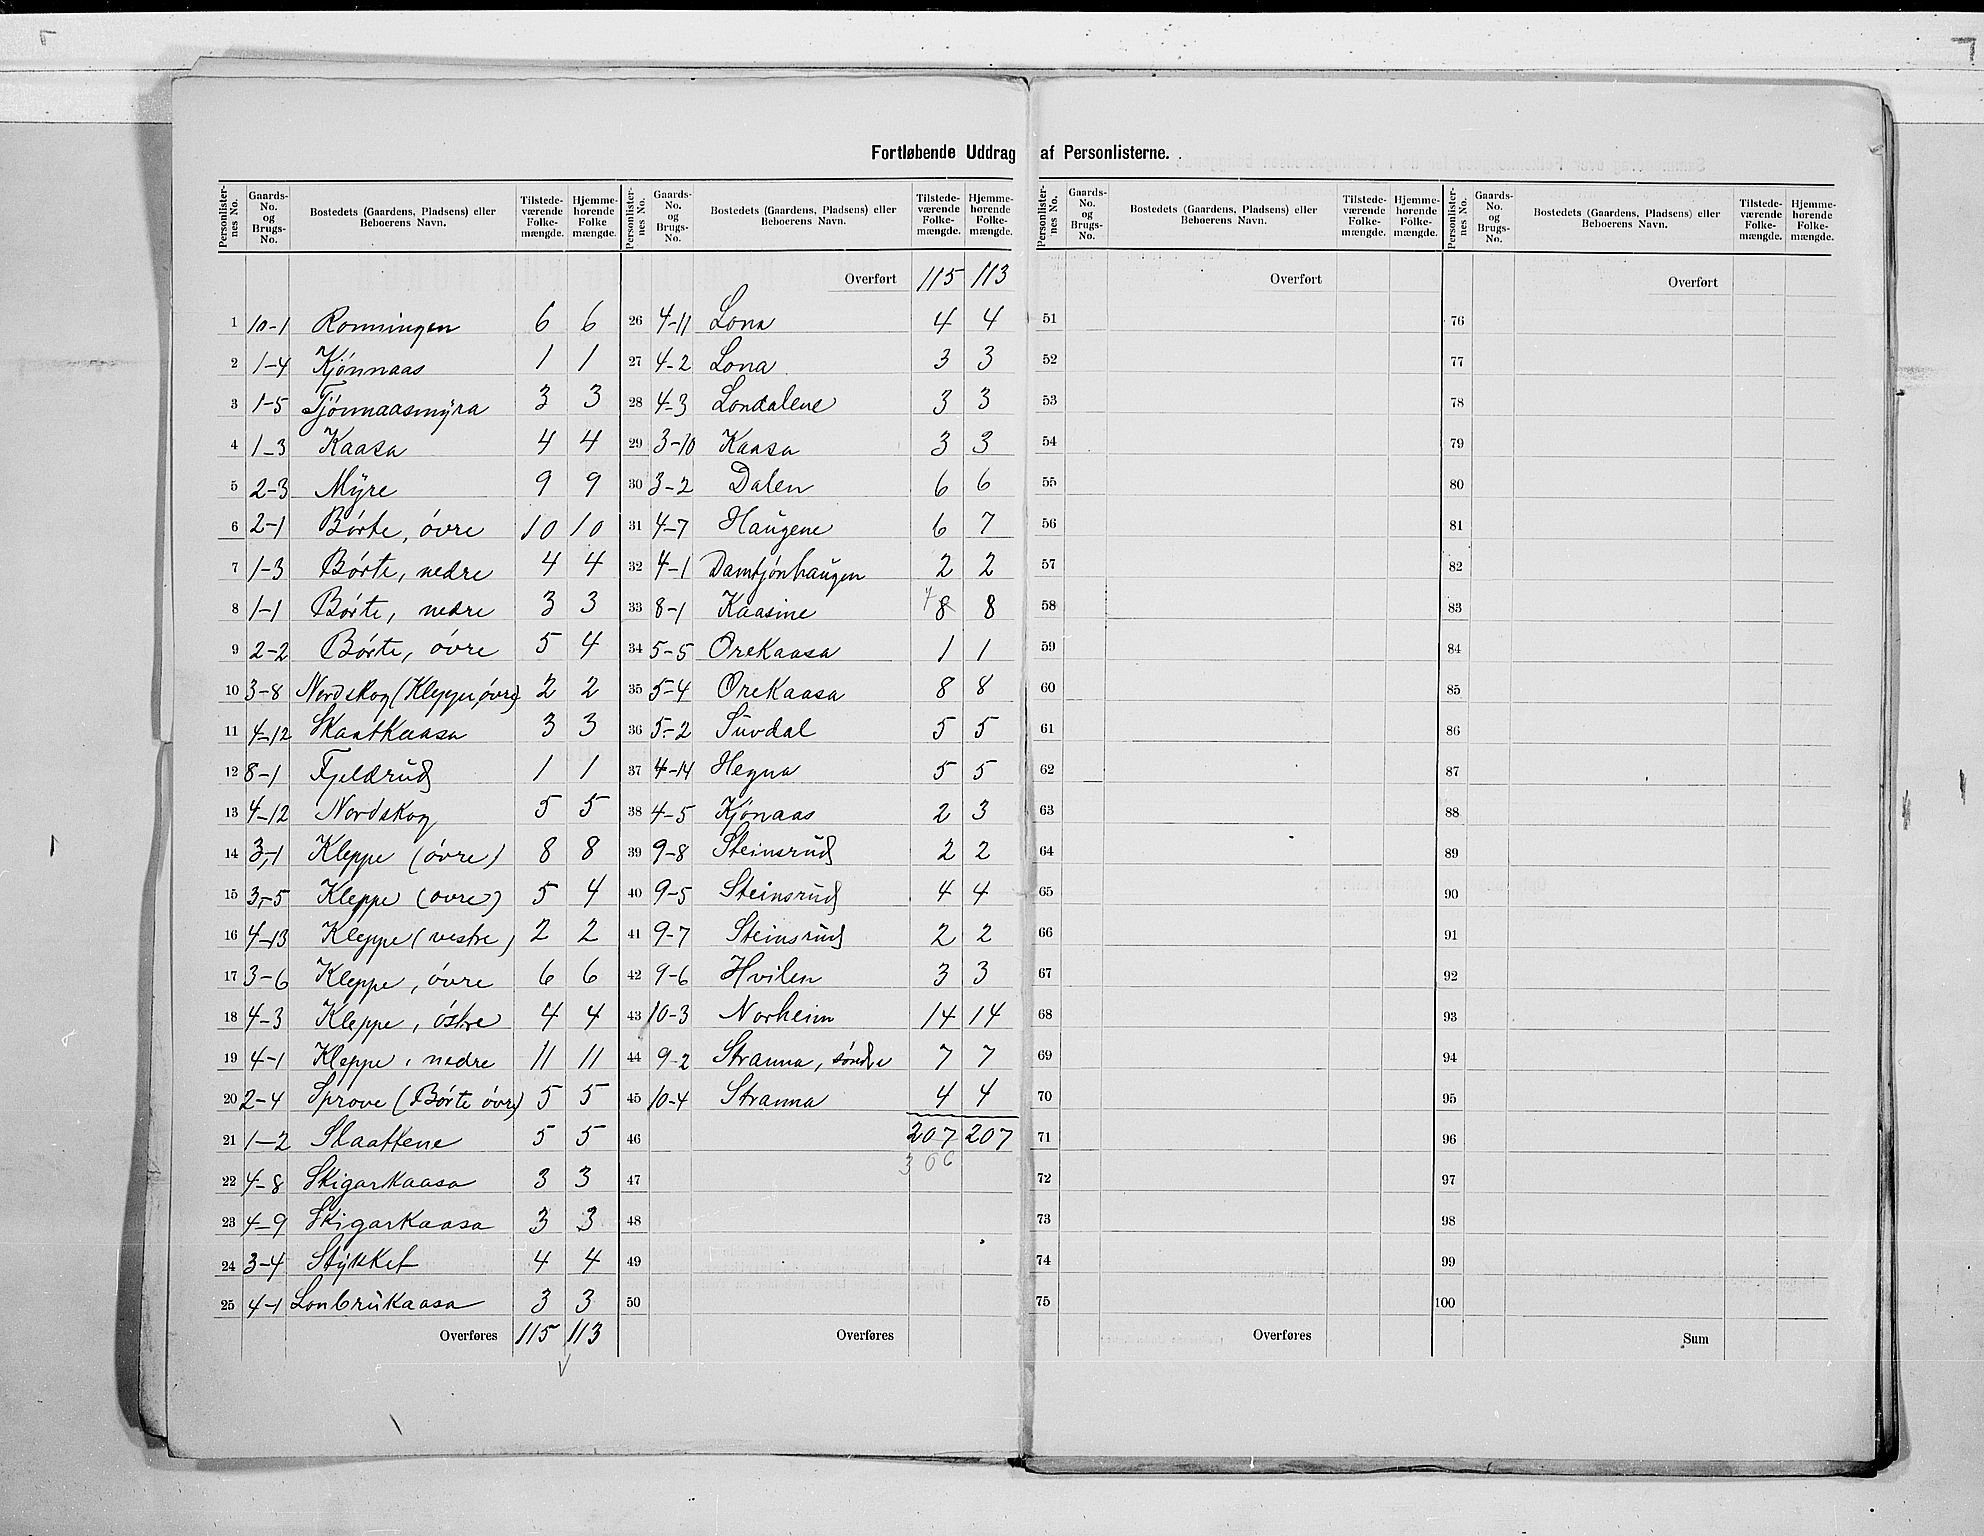 Fortløbende Uddrag af Personlisterne.
Personlisternes No. Gaards-No. og Brugs-No. Bostedets (Gaardens, Pladsens) eller Beboerens Navn. Tilstedeværende Folkemængde. Hjemmehørende Folkemængde.
1 10-1 Ronningen 6 6
2 1-4 Kjønnaas 1 1
3 1-5 Tjønnaasmyra 3 3
4 1-3 Kaasa 4 4
5 2-3 Mÿre 9 9
6 2-1 Børte, øvre 10 10
7 1-3 Børte, nedre 4 4
8 1-1 Børte, nedre 3 3
9 2-2 Børte, øvre 5 4
10 3-8 Nordskog (Kleppe, øvre) 2 2
11 4-12 Skaatkaasa 3 3
12 8-1 Fjeldrud 1 1
13 4-12 Nordskog 5 5
14 3-1 Kleppe (øvre) 8 8
15 3-5 Kleppe (øvre) 5 4
16 4-13 Kleppe (vestre) 2 2
17 3-6 Kleppe, øvre 6 6
18 4-3 Kleppe, østre 4 4
19 4-1 Kleppe, nedre 11 11
20 2-4 Sprove (Børte øvre) 5 5
21 1-2 Slaattene 5 5
22 4-8 Skigarkaasa 3 3
23 4-9 Skigarkaasa 3 3
24 3-4 Stÿkket 4 4
25 4-1 Lonbrukaasa 3 3
Overføres 115 113
Personlisternes No. Gaards-No. og Brugs-No. Bostedets (Gaardens, Pladsens) eller Beboerens Navn. Tilstedeværende Folkemængde. Hjemmehørende Folkemængde.
Overført 115 113
26 4-11 Lona 4 4
27 4-2 Lona 3 3
28 4-3 Londalene 3 3
29 3-10 Kaasa 3 3
30 3-2 Dalen 6 6
31 4-7 Haugene 6 7
32 4-1 Damtjønhaugen 2 2
33 8-1 Kaasine 7 8 8
34 5-5 Orekaasa 1 1
35 5-4 Orekaasa 8 8
36 5-2 Suvdal 5 5
37 4-14 Hegna 5 5
38 4-5 Kjønaas 2 3
39 9-8 Steinsrud 2 2
40 9-5 Steinsrud 4 4
41 9-7 Steinsrud 2 2
42 9-6 Hvilen 3 3
43 10-3 Norheim 14 14
44 9-2 Stranna, søndre 7 7
45 10-4 Stranna 4 4
46 207 207
306
47
48
49
50
Overføres
Personlisternes No. Gaards-No. og Brugs-No. Bostedets (Gaardens, Pladsens) eller Beboerens Navn. Tilstedeværende Folkemængde. Hjemmehørende Folkemængde.
Overført
51
52
53
54
55
56
57
58
59
60
61
62
63
64
65
66
67
68
69
70
71
72
73
74
75
Overføres
Personlisternes No. Gaards-No. og Brugs-No. Bostedets (Gaardens, Pladsens) eller Beboerens Navn. Tilstedeværende Folkemængde. Hjemmehørende Folkemængde.
Overført
76
77
78
79
80
81
82
83
84
85
86
87
88
89
90
91
92
93
94
95
96
97
98
99
100
Sum